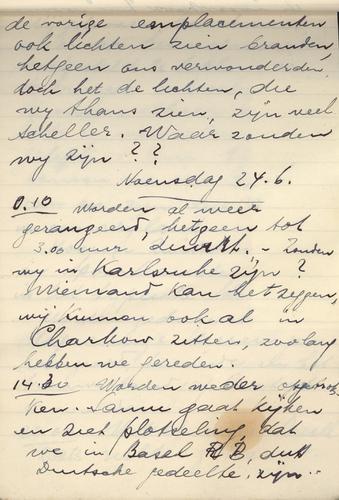 de vorige emplacementen
ook lichten zien branden,
hetgeen ons verwonderden,
doch het de lichten, die
wy thans zien, zyn veel
scheller. Waar zouden
wy zijn ??
Woensdag 24.6.
0.10 Worden al weer
gerangeerd, hetgeen tot
3.00 uur duurt. - Zouden
wy in Karlsruhe zijn?
Niemand kan het zeggen,
wij kunnen ook al in
Charkow zitten, zoolang
hebben we gereden.
14.30 Worden weder
ken. gaat kijken
en ziet plotseling, dat
we in Basel B, dus
Duitsche gedeelte, zijn.